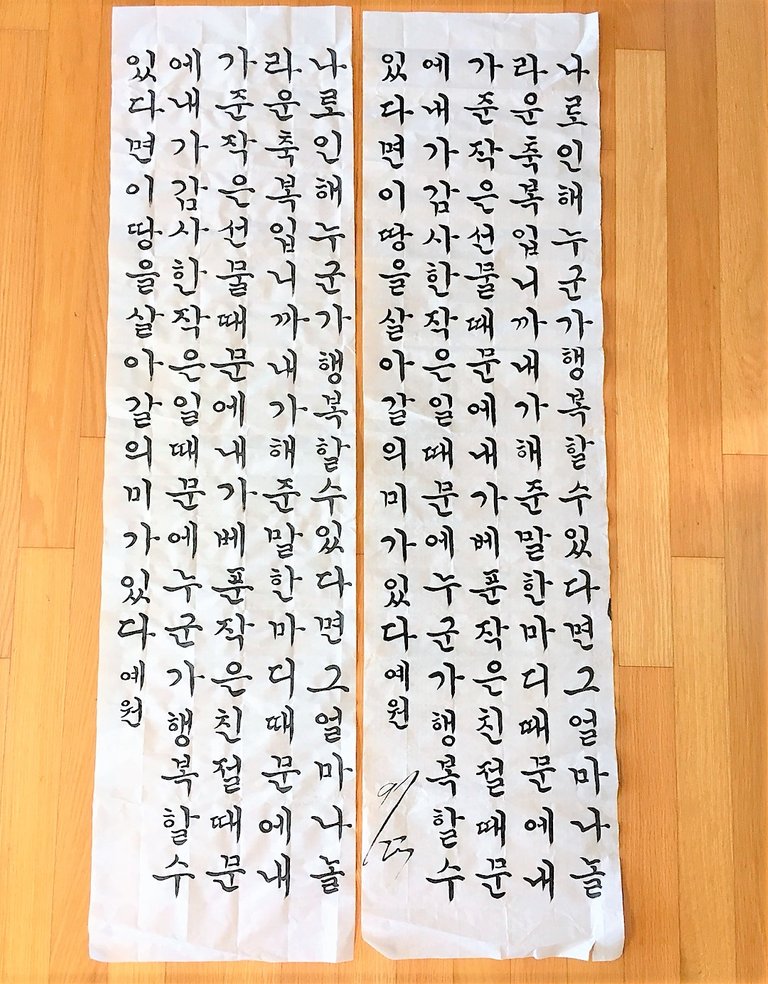 나로인해누군가행복할수있다면그얼마나놀
라운축복입니까내가해준말한마디때문에내
가준작은선물때문에내가베푼작은친절때문
에내가감사한작은일때문에누군가행복할수
있다면이땅을살아갈의미가있다 예원
나로인해누군가행복할수있다면그얼마나놀
라운축복입니까내가해준말한마디때문에내
가준작은선물때문에내가베푼작은친절때문
에내가감사한작은일때문에누군가행복할수
있다면이땅을살아갈의미가있다 예원